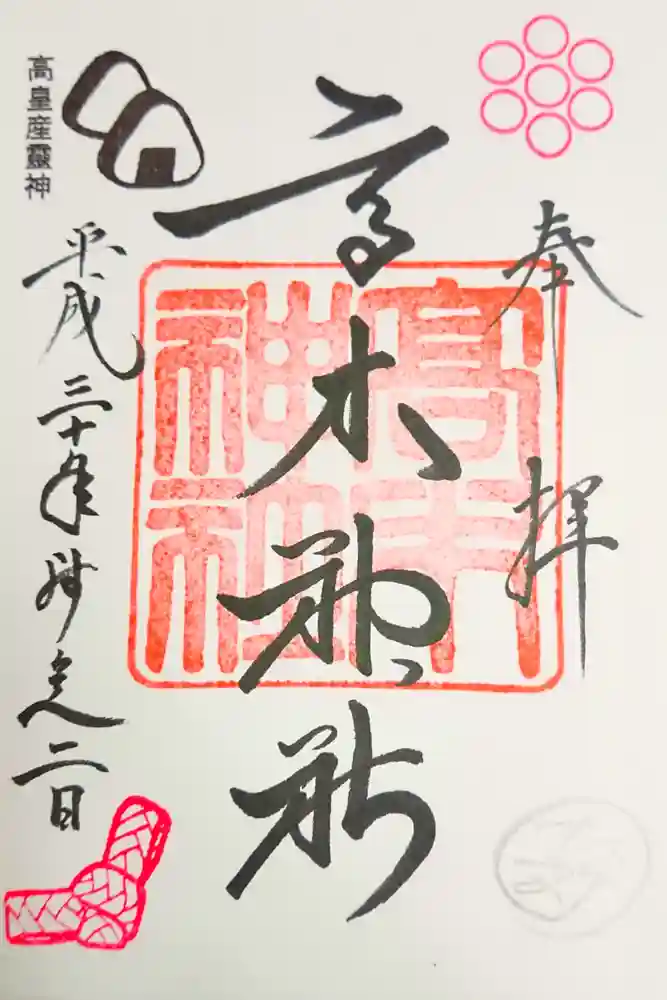 奉拝
高木神社
高木神社
高皇産靈神
平成三十年師走二日